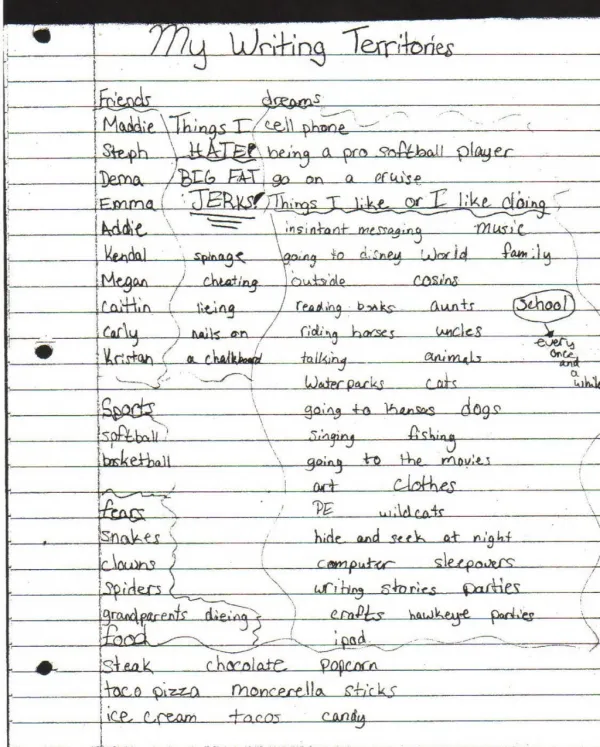 My Writing Territories
Friends dreams
Maddie Things I cell phone
Steph HATE! being a pro softball player
Dema BIG FAT go on a cruise
Emma JERKS! Things I like or I like doing
Addie insintant messaging music
Kendal spinage going to disney World family
Megan cheating outside cosins
Caitlin lieing reading books aunts School
Carly nails on riding horses uncles every
Kristan a chalkboard talking animals once and
Waterparks cats a while
Sports going to Kansas dogs
softball singing fishing
basketball going to the movies
art clothes
fears PE wildcats
snakes hide and seek at night
clowns computer sleepovers
spiders writing stories parties
grandparents dieing crafts hawkeye parties
food ipod
Steak chocolate Popcorn
taco pizza moncerella sticks
ice cream tacos candy